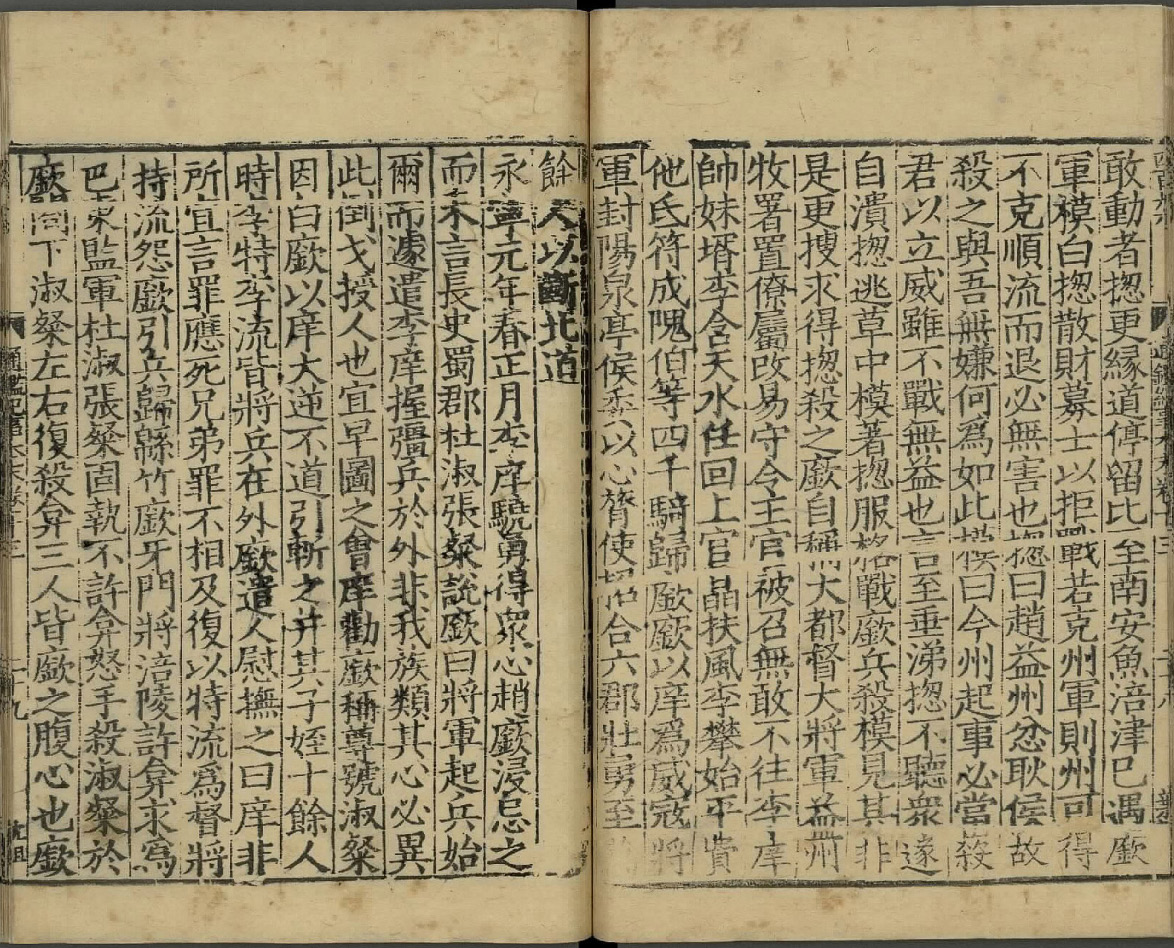 敢動者揔更緣道停留比至南安魚涪津已遇廞
軍模白揔散財募士以拒戰若克州軍則州可得
不克順流而退必無害也揔曰趙益州忿耿侯故
殺之與吾無嫌何爲如此模曰今州起事必當殺
君以立威雖不戰無益也言至垂涕揔不聽衆遂
自潰揔逃草中模著揔服格戰廞兵殺模見其非
是更搜求得揔殺之廞自稱大都督大將軍益州
牧署置僚屬改易守令王官被召無敢不往李庠
帥妹壻李含天水任回上官晶扶風李攀始平費
他氐符成隗伯等四千騎歸廞廞以庠爲威寇將
軍封陽泉亭侯委以心膂使招合六郡壯勇至萬
餘人以斷北道
永寧元年春正月李庠驍勇得衆心趙廞浸忌之
而未言長史蜀郡杜淑張粲說廞曰將軍起兵始
爾而遽遣李庠握彊兵於外非我族類其心必異
此倒戈授人也宜早圖之會庠勸廞稱尊號淑粲
因白廞以庠大逆不道引斬之并其子姪十餘人
時李特李流皆將兵在外廞遣人慰撫之曰庠非
所宜言罪應死兄弟罪不相及復以特流爲督將
特流怨廞引兵歸緜竹廞牙門將涪陵許弇求爲
巴東監軍杜淑張粲固執不許弇怒手殺淑粲於
廞閤下淑粲左右復殺弇三人皆廞之腹心也廞